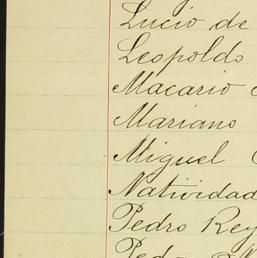 Lucio de
Leopoldo
Macario
Mariano
Miguel
Natividad
Pedro Rey
Pedro